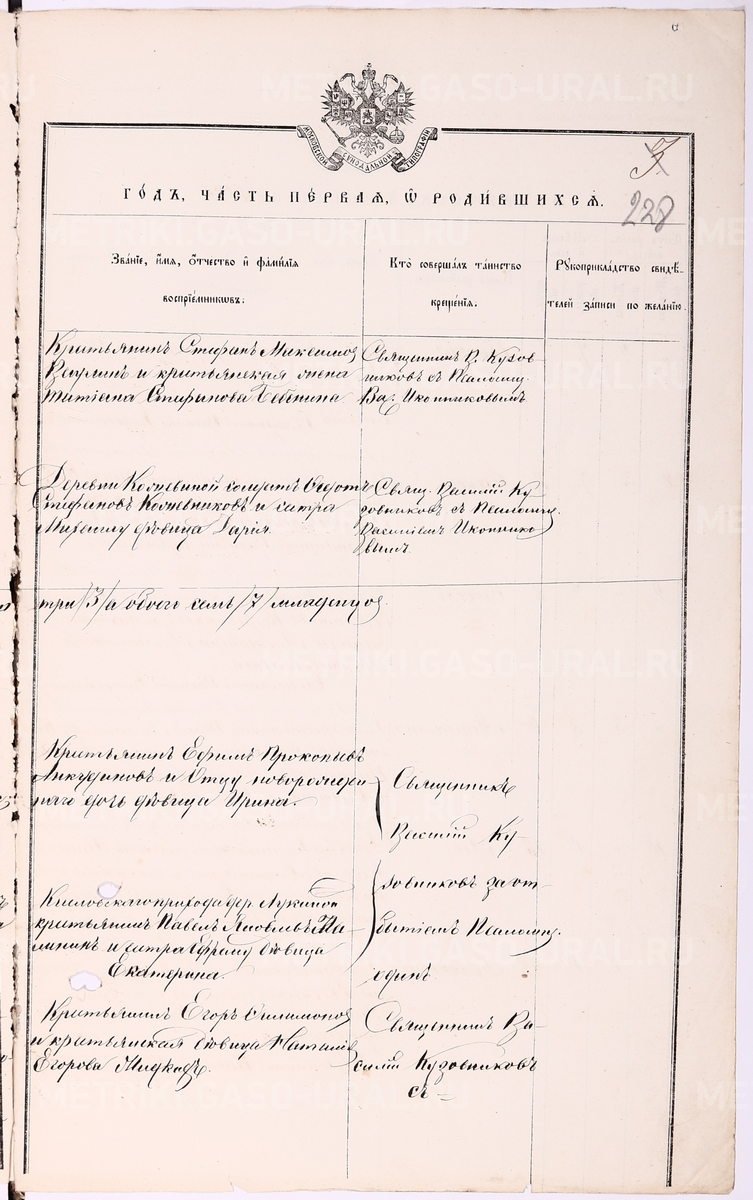 МОСКОВСКОЙ СИНОДАЛЬНОЙ ТИПОГРАФІИ
228
ГОДЪ, ЧАСТЬ ПЕРВАЯ, Ѿ РОДИВШИХСЯ.
Званіе, имя, отчество и фамилія
воспріемниковъ.
Кто совершалъ таинство
крещенія.
Рукоприкладство свидѣ-
телей записи по желанію.
Крестьянинъ Стефанъ Максимовъ
и крестьянская жена
Татіана Стефанова Бебенина
Священникъ В. Кузов
никовъ съ Псаломщ.
Вас. Иконниковымъ
Деревни Кожевиной солдатъ Ѳедотъ
Стефановъ Кожевниковъ и сестра
Михаилу дѣвица Дарія.
Свящ. Василій Ку-
зовниковъ съ Псаломщ.
Василіемъ Иконнико
вымъ.
три /3/ а обоего семь /7/ младенцовъ.
Крестьянинъ Ефимъ Прокопьевъ
Анкудиновъ и Отцу новорожден
наго дочь дѣвица Ирина.
Священникъ
Василій Ку-
зовниковъ за от-
бытіемъ Псаломщ.
одинъ.
Кисловскаго прихода дер.
крестьянинъ Павелъ Яковлевъ Ма-
лининъ и сестра Ефрему дѣвица
Екатерина.
Крестьянинъ Егоръ Филимоновъ
и крестьянская дѣвица Наталія
Егорова
Священникъ Ва-
силій Кузовниковъ
съ –
METRIKI.GASO-URAL.RU